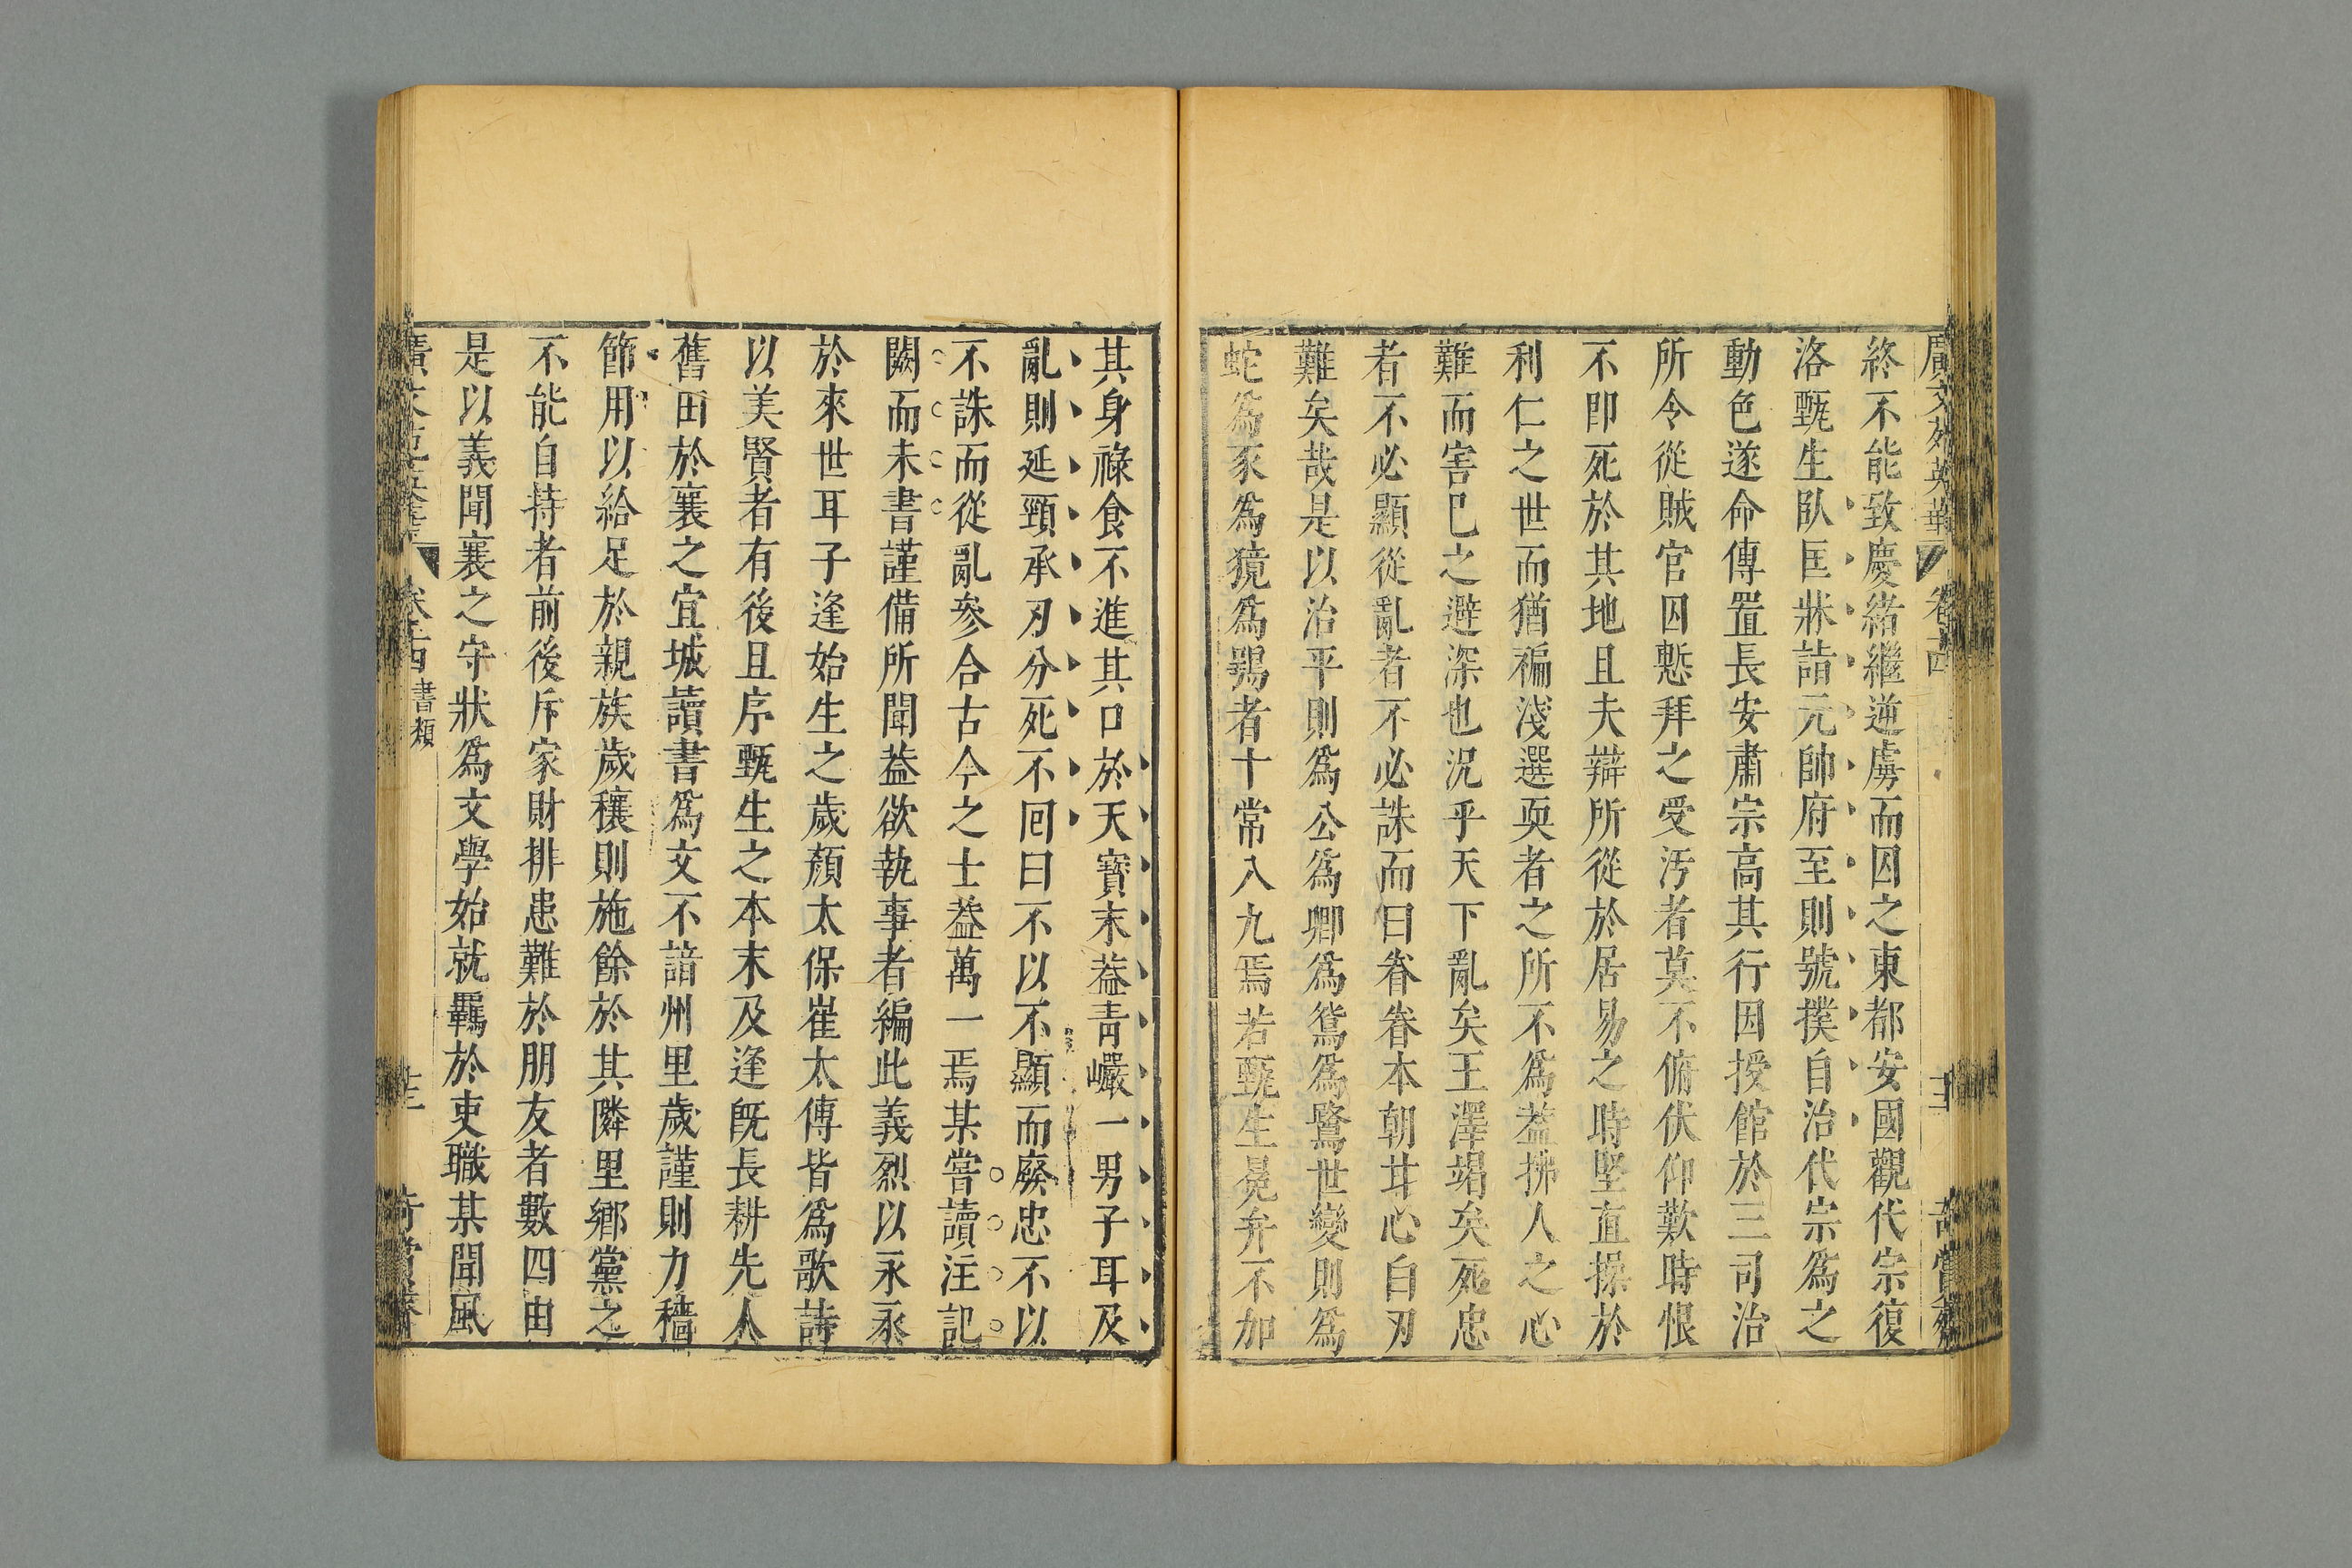 廣文苑英華 卷十四
終不能致慶緒繼逆虜而囚之東都安國觀代宗復
洛甄生臥匡牀詣元帥府至則號撲自治代宗為之
動色遂命傳置長安肅宗高其行因授館於三司治
所令從賊官囚慙拜之受汚者莫不俯伏仰歎時恨
不卽死於其地且夫辯所從於居易之時堅直操於
利仁之世而猶褊淺選耎者之所不為葢拂人之心
難而害已之避深也況乎天下亂矣王澤竭矣死忠
者不必顯從亂者不必誅而曰眷眷本朝甘心白刃
難矣哉是以治平則為公為卿為鴛為鷺世變則為
蛇為豕為獍為鴞者十常八九焉若甄生冕弁不加
其身祿食不進其口於天寶末葢青巖一男子耳及
亂則延頸承刃分死不回曰不以不顯而廢忠不以
不誅而從亂參合古今之士葢萬一焉某嘗讀注記
闕而未書謹備所聞葢欲執事者編此義烈以永永
於來世耳子逢始生之歲顏太保崔太傅皆為歌詩
以美賢者有後且序甄生之本末及逢旣長耕先人
舊田於襄之宜城讀書為文不諳州里歲謹則力穡
節用以給足於親族歲穰則施餘於其隣里鄉黨之
不能自持者前後斥家財排患難於朋友者數四由
是以義聞襄之守狀為文學始就羈於吏職某聞風
卷十四 書類